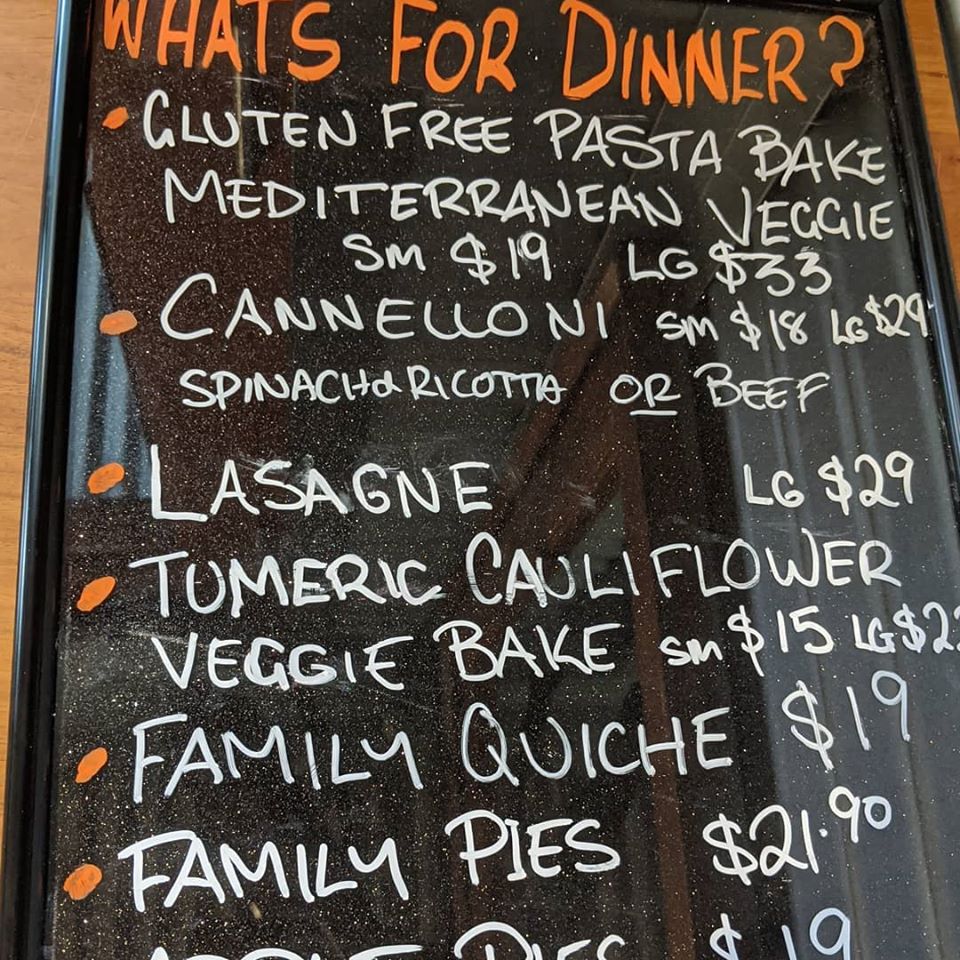 WHATS FOR DINNER?
• GLUTEN FREE PASTA BAKE
MEDITERRANEAN VEGGIE
SM $19 LG $33
• CANNELLONI SM $18 LG $29
SPINACH & RICOTTA OR BEEF
• LASAGNE LG $29
• TUMERIC CAULIFLOWER
VEGGIE BAKE SM $15 LG
• FAMILY QUICHE $19
• FAMILY PIES $21.90
APPLE PIES $19